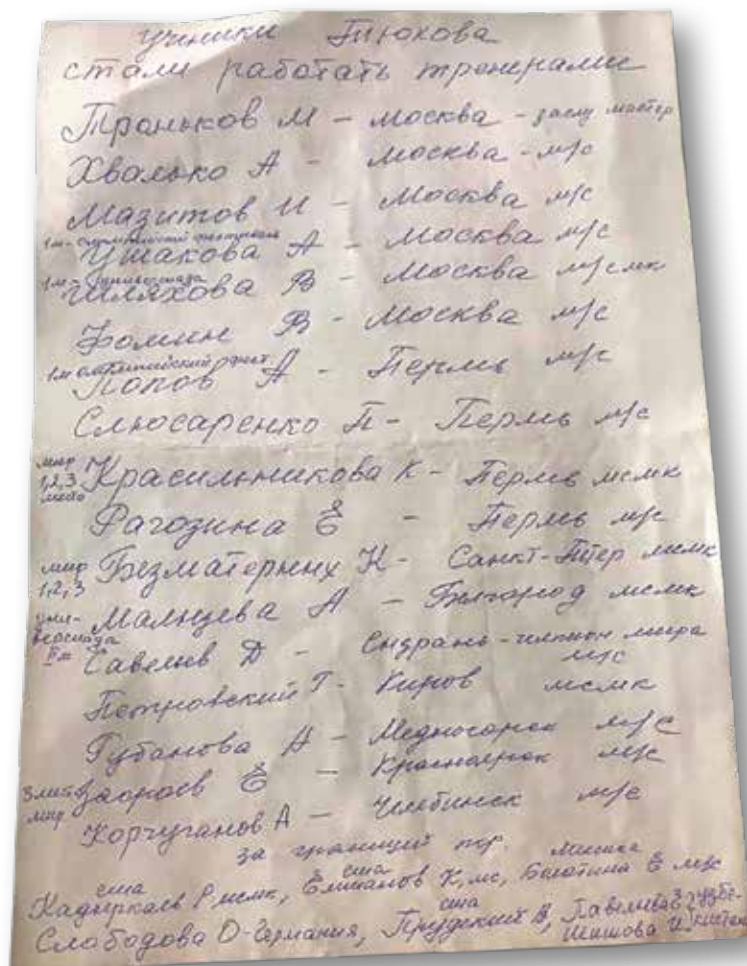 ученики Тюкова
стали работать тренерами
Траньков М - Москва - заслу мастер
Хвалько А - Москва - м/с
Мазитов И - Москва м/с
Ушакова А - Москва м/с
1м - универсиада
Шляхова В - Москва м/смк
Фомин В - Москва м/с
1м олимпийский фест.
Попов А - Пермь м/с
Слюсаренко П - Пермь м/с
мир 1,2,3 место
Красильникова К - Пермь мсмк
Рагозина Е - Пермь м/с
мир 1,2,3
Безматерных К - Санкт-Питер мсмк
универсиада
Мальцева А - Белгород мсмк
Савельев Д - Сызрань - чемпион мира
м/с
Петровский Г - Киров мсмк
Губанова А - Медногорск м/с
Е - Красноярск м/с
3 мир
Корчуганов А - Челябинск м/с
за границей
сша сша
Кадыркаев Р, мсмк, К, мс, Болотина Е м/с
сша
Слободова О - Германия, Прудский В, Павлова
Шишова И